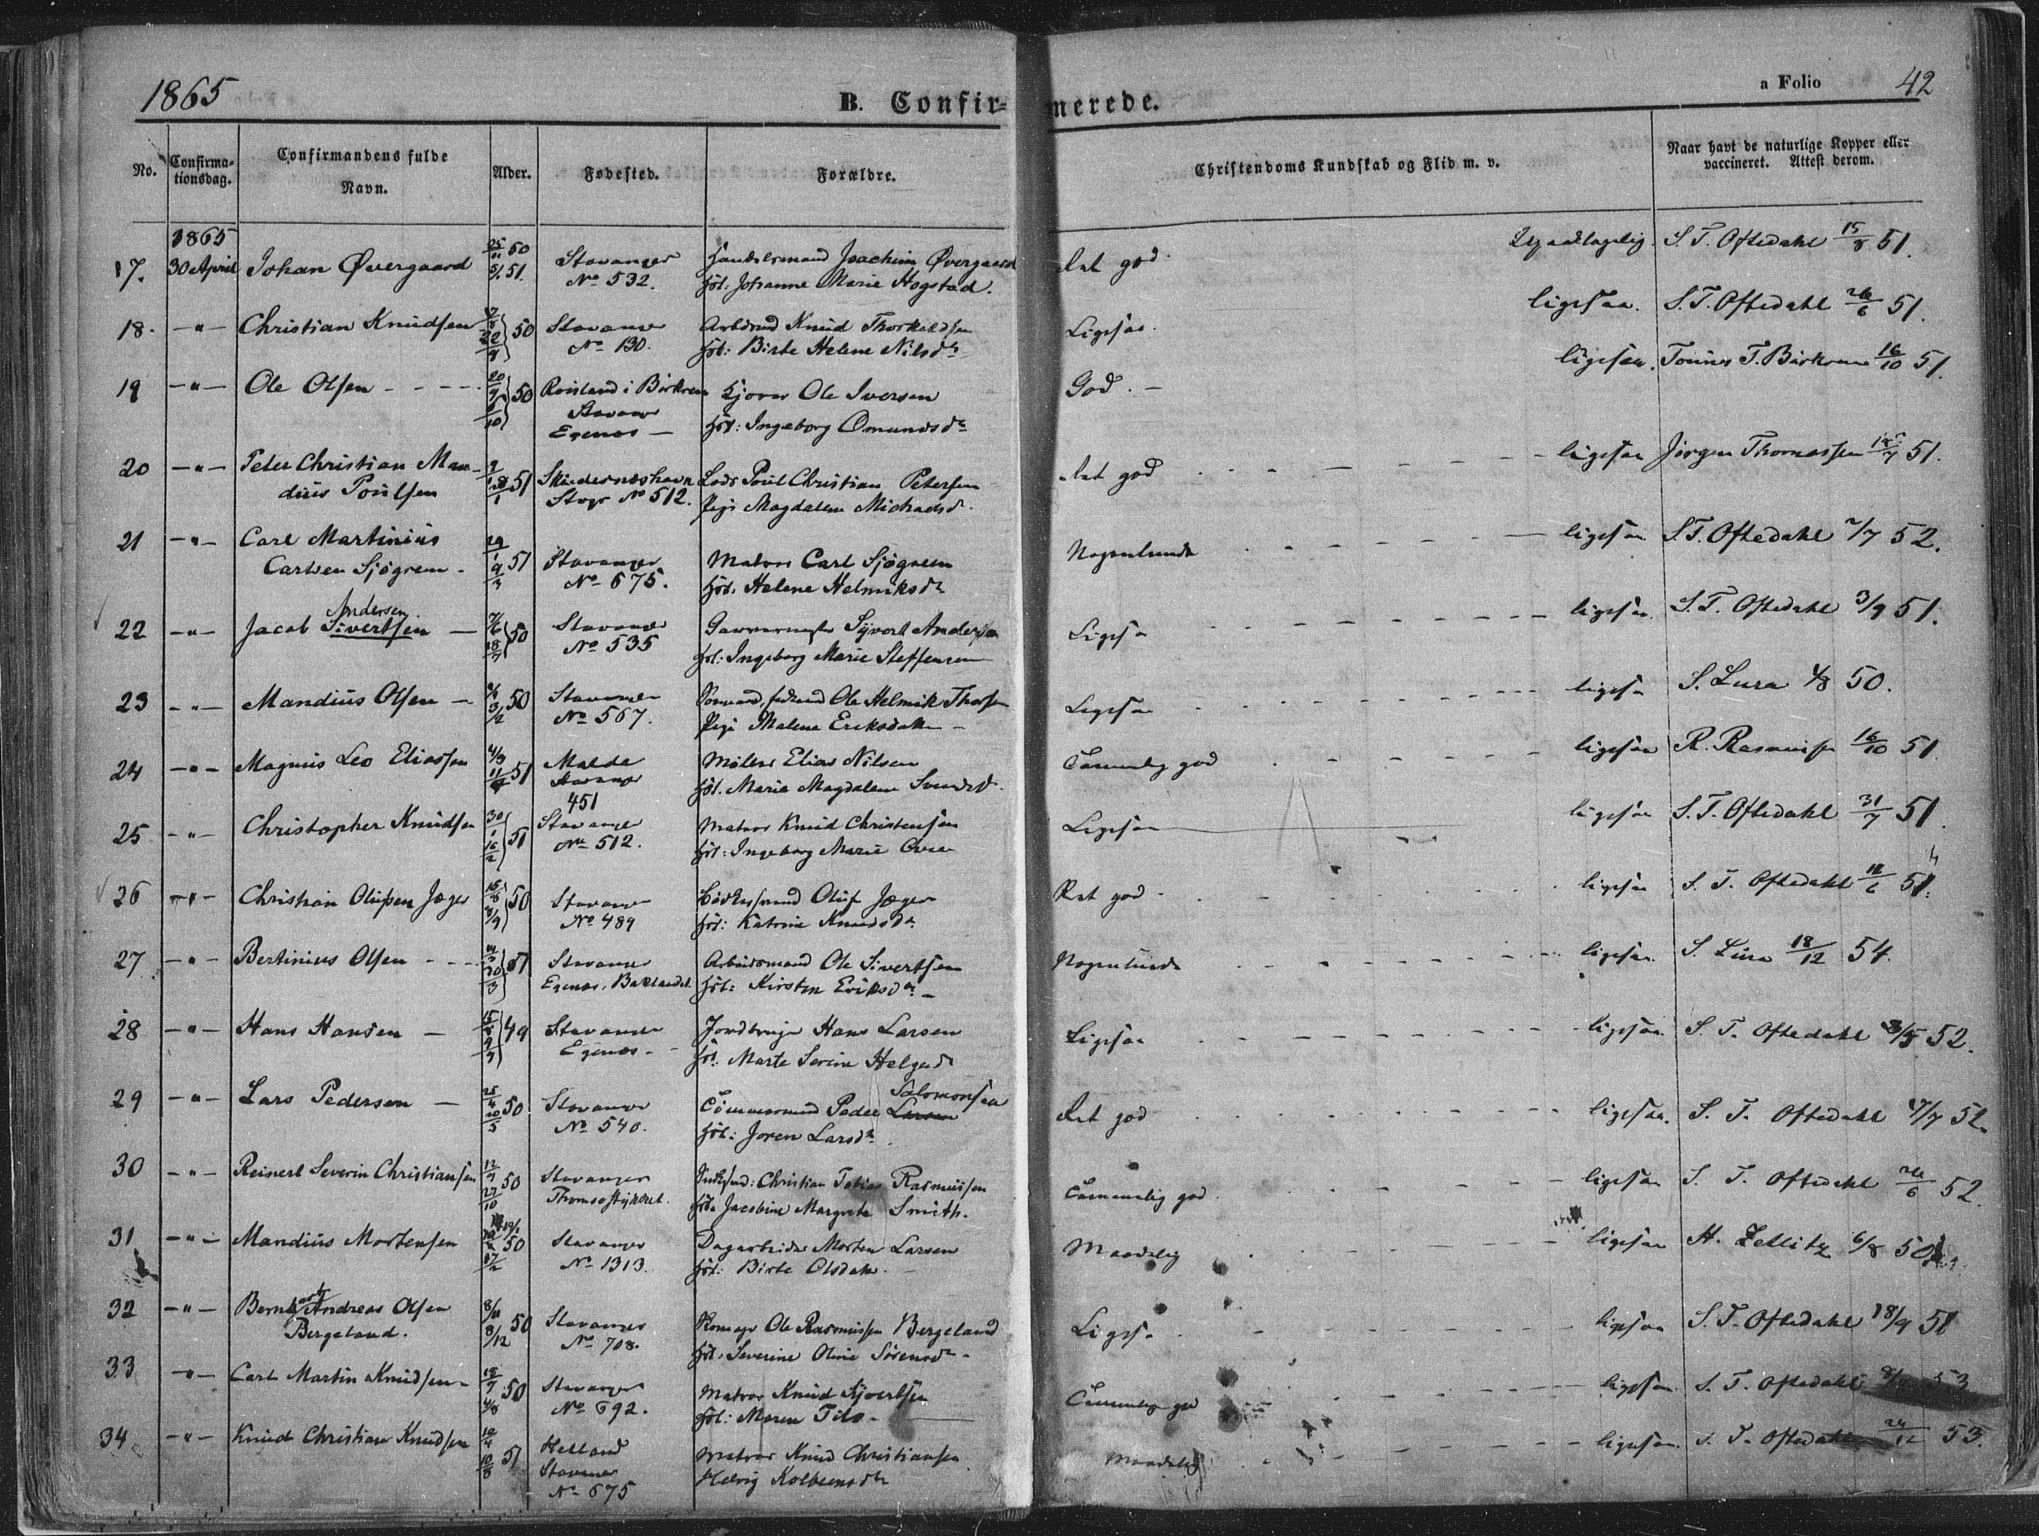 1865
B. Confir=
merede.
a Folio 42
No.
Confirma-
tionsdag.
Confirmandens fulde
Navn.
Alder.
Fødested.
Forældre.
Christendoms Kundskab og Flid m. v.
Naar havt de naturlige Kopper eller
vaccineret. Attest derom.
1865
17. 30 April Johan Øvergaard 25/11 50 5/1 51. Stavanger No 532. Handelsmand Joachim Øvergaard
Høt. Johanne Marie Hogstad.
Ret god. S. T. Oftedahl 15/8 51.
18. -"- Christian Knudsen 50 Stavanger No 130. Arbdmd Knud Thorkeldsen
Høt: Birte Helene Nilsdtr
Ligesaa. ligesaa. S. T. Oftedahl 26/6 51.
19 -"- Ole Olsen 50 Røisland i Birkrem
Stavanger
Egenæs Ole Iversen
Høt: Ingeborg Omundsdr
God. ligesaa. Tønnes T. Birkrem 16/10 51.
20 -"- Peter Christian Man-
dius Poulsen 51 Skudesnæshavn
Stvgr No 512. Lods Poul Christian Petersen
Pige Magdalene Michaelsd.
Ret god ligesaa Jørgen Thomassen 51.
21 -"- Carl Martinius
Carlsen Sjøgren. 29/1 9/3 51 Stavanger
No 675. Matros Carl Sjøgreen
Høt. Helene Helmiksdr
Nogenlunde ligesaa S. T. Oftedahl 2/7 52.
22 -"- Jacob Sivertsen
Andersen 7/6 18/7 50 Stavanger
No 535 Garvermester Syvert Andersen
Høt: Ingeborg Marie Steffensen
Ligesaa ligesaa S. T. Oftedahl 3/9 51.
23 -"- Mandius Olsen 50 Stavanger
No 567. Ole Helmik Thorsen
Pige Malene Eriksdatter
Ligesaa ligesaa S. Lura 4/8 50.
24 -"- Magnus Leo Eliassen 51 Malde
Stavanger
451 Møller Elias Nilsen
Høt. Marie Magdalene Svendsd.
Temmelig god ligesaa R. Rasmussen 16/10 51
25 -"- Christopher Knudsen 30/1 16/2 51 Stavanger
No 512. Matros Knud Christensen
Høt: Ingeborg Marie
Ligesaa ligesaa S. T. Oftedahl 31/7 51.
26 -"- Christian Olufsen Jæger 15/8 8/9 50 Stavanger
No 489 Oluf Jæger
Høt: Katrine Knudsdr.
Ret god ligesaa S. T. Oftedahl 51.
27 -"- Bertinius Olsen 51 Stavanger
Egenæs, Baklandet Arbeidsmand Ole Sivertsen
Høt: Kirsten Eriksdr
Nogenlunde ligesaa. S. Lura 18/12 54.
28 -"- Hans Hansen 49 Stavanger
Egenæs Jordbruger Hans Larsen
Høt. Marte Serine Helgesd
Ligesaa ligesaa S. T. Oftedahl 52.
29 -"- Lars Pedersen 25/4 20/5 50 Stavanger
No 540. Tømmermand Peder Larsen
Salomonsen
Høt: Joren Larsdr.
Ret god ligesaa. S. T. Oftedahl 17/7 52.
30 -"- Reinert Severin Christiansen 50 Stavanger
Thomsestykket. Christian Tobias Rasmussen
Høt. Jacobine Margrete Smith.
Temmelig god. ligesaa S. T. Oftedahl 26/6 52.
31 -"- Mandius Mortensen 50 Stavanger
No 1313. Dagarbeider Morten Larsen
Høt. Birte Olsdatter
Maadelig ligesaa H. Zetlitz 6/8 50
32 -"- Bernhard Andreas Olsen
Bergeland. 8/11 8/12 50 Stavanger
No 708. Ole Rasmussen Bergeland
Høt. Severine Oline Sørensdr
Ligesaa ligesaa S. T. Oftedahl 18/9 51
33 -"- Carl Martin Knudsen 50 Stavanger
No 692. Matros Knud Syvertsen
Høt: Maren
Temmelig god ligesaa. S. T. Oftedahl 53
34 -"- Knud Christian Knudsen 51 Helland
Stavanger
No 675 Matros Knud Christiansen
Helvig Kolbeensdtr
Maadelig ligesaa. S. T. Oftedahl 24/12 53.